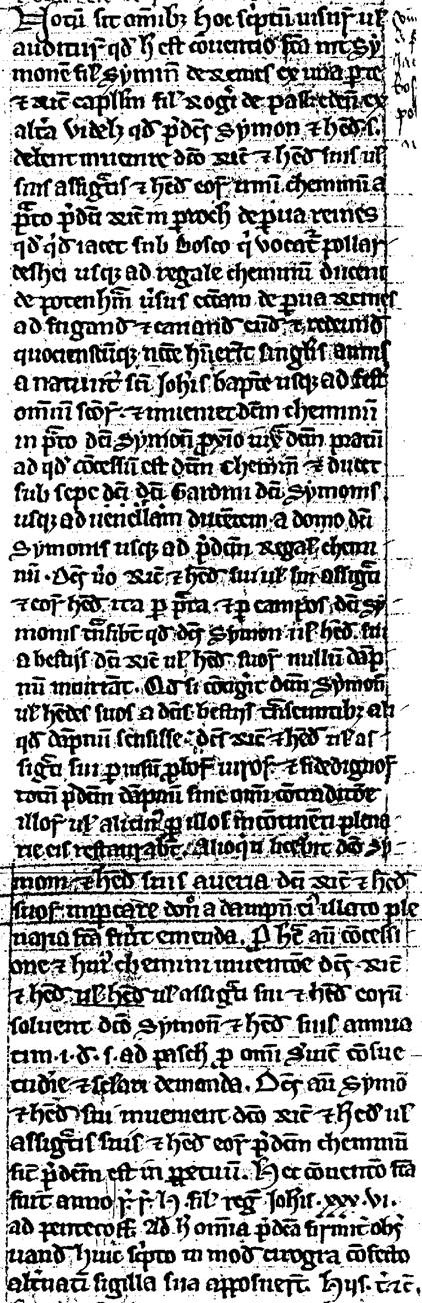 Notū sit om̄ibꝫ hoc sc̄ptū uisuris ul̄
auditur̄ qd̄ h̄ est cōuentio fc̄a int̄ Sy
monē fil̄ Symōn de Reines ex una ꝑte
⁊ Ric̄ capll̄m fil̄ Rogi de ex
alt̄a videlꝫ qd̄ p̄dc̄s Symon ⁊ hed̄ s.
debent inuenire dc̄o Ric̄ ⁊ hed̄ suis ul̄
suis assigt̄is ⁊ hed̄ eoꝝ unū cheminū a
pͣto p̄dc̄i Ric̄ in ꝑroch̄ de ꝑua reines
qd̄ iacet sub bosco q̄ uocat̄ pollar
deshei usqꝫ ad regale cheminū ducent̄
de ūsus de ꝑua Reines
ad fugand̄ ⁊ cariand̄ eūd̄ ⁊ redeūd̄
quociensc̄ūqꝫ nc̄c̄e hūerīt singl̄is annis
a natiuit̄ sc̄i Joh̄is bapt̄e usqꝫ ad fest̄
om̄iū sc̄oꝝ ⁊ inueniet dc̄m cheminū
in pͣto dc̄i Symōn ꝓxīo iuxͣ dc̄m pratū
ad qd̄ cōcessū est dc̄m chemin̄ ⁊ ducet
sub sepe dc̄i gardini dc̄i Symonis
usqꝫ ad uenellam ducētem a domo dc̄i
Symonis usqꝫ ad p̄dc̄m regal̄ chemi
nū. Dc̄s ūo Ric̄ ⁊ hed̄ sui ul̄ sui assigt̄i
⁊ eoꝝ hed̄ ita ꝑ pͣta ⁊ ꝑ campos dc̄i Sy
monis tͣnsibt̄ qd̄ dc̄s Symon ul̄ hed̄ sui
a bestijs dc̄i Ric̄ ul̄ hed̄ suoꝝ nullū dāp
nū incurrāt. Qd̄ si cōtigit̄ dc̄m Symōn
ul̄ hedes suos a dc̄is bestijs tͣnseuntibꝫ ali
qd̄ dāpnū sensisse: dc̄s Ric̄ ⁊ hed̄ ul̄ as
sigt̄i sui ꝑ uisū ꝓboꝝ uiroꝝ ⁊ fidedignoꝝ
totū p̄dc̄m dāpnū sine om̄i cōtradic̄ōe
illoꝝ ul̄ alicui᷒ ꝑ illos incōtinēti plena
rie eis restaurabt̄. Alioqͥ licebit dc̄o Sy
moni ⁊ hed̄ suis aueria dc̄i Ric̄ ⁊ hed̄
suoꝝ inpcare don̄ a dampn̄ ei᷒ illato ple
naria fc̄a fuīt emenda. ꝑ hc̄ aū cōcessi
one ⁊ hui᷒ chemini inuentōe dc̄s Ric̄
⁊ hed̄ ul̄ hed̄ ul̄ assigt̄i sui ⁊ hed̄ eorū
soluent dc̄o Symōn ⁊ hed̄ suis annua
tim .i. d̄. s. ad pasch̄ ꝓ om̄i suic̄ cōsue
tudīe ⁊ sclari demanda. Dc̄s aū Symō
⁊ hed̄ sui inuenient dc̄o Ric̄ ⁊ hed̄ ul̄
assigt̄is suis ⁊ hed̄ eoꝝ p̄dc̄m cheminū
sic̄ p̄dc̄m est in ꝑpetuū. Hec cōuento fc̄a
fuit anno r̄. r̄. H. fil̄ reg̃ Joh̄is .xxx.vi.
ad pentecosͭ. Ad h̄ om̄ia p̄dc̄a firmit̄ obs̄
uand̄ huic sc̄pto in mod̄ cirogra cōfecto
alt̄natī sigilla sua apposuer̄t. Hijs. t̄. ⁊c̄.